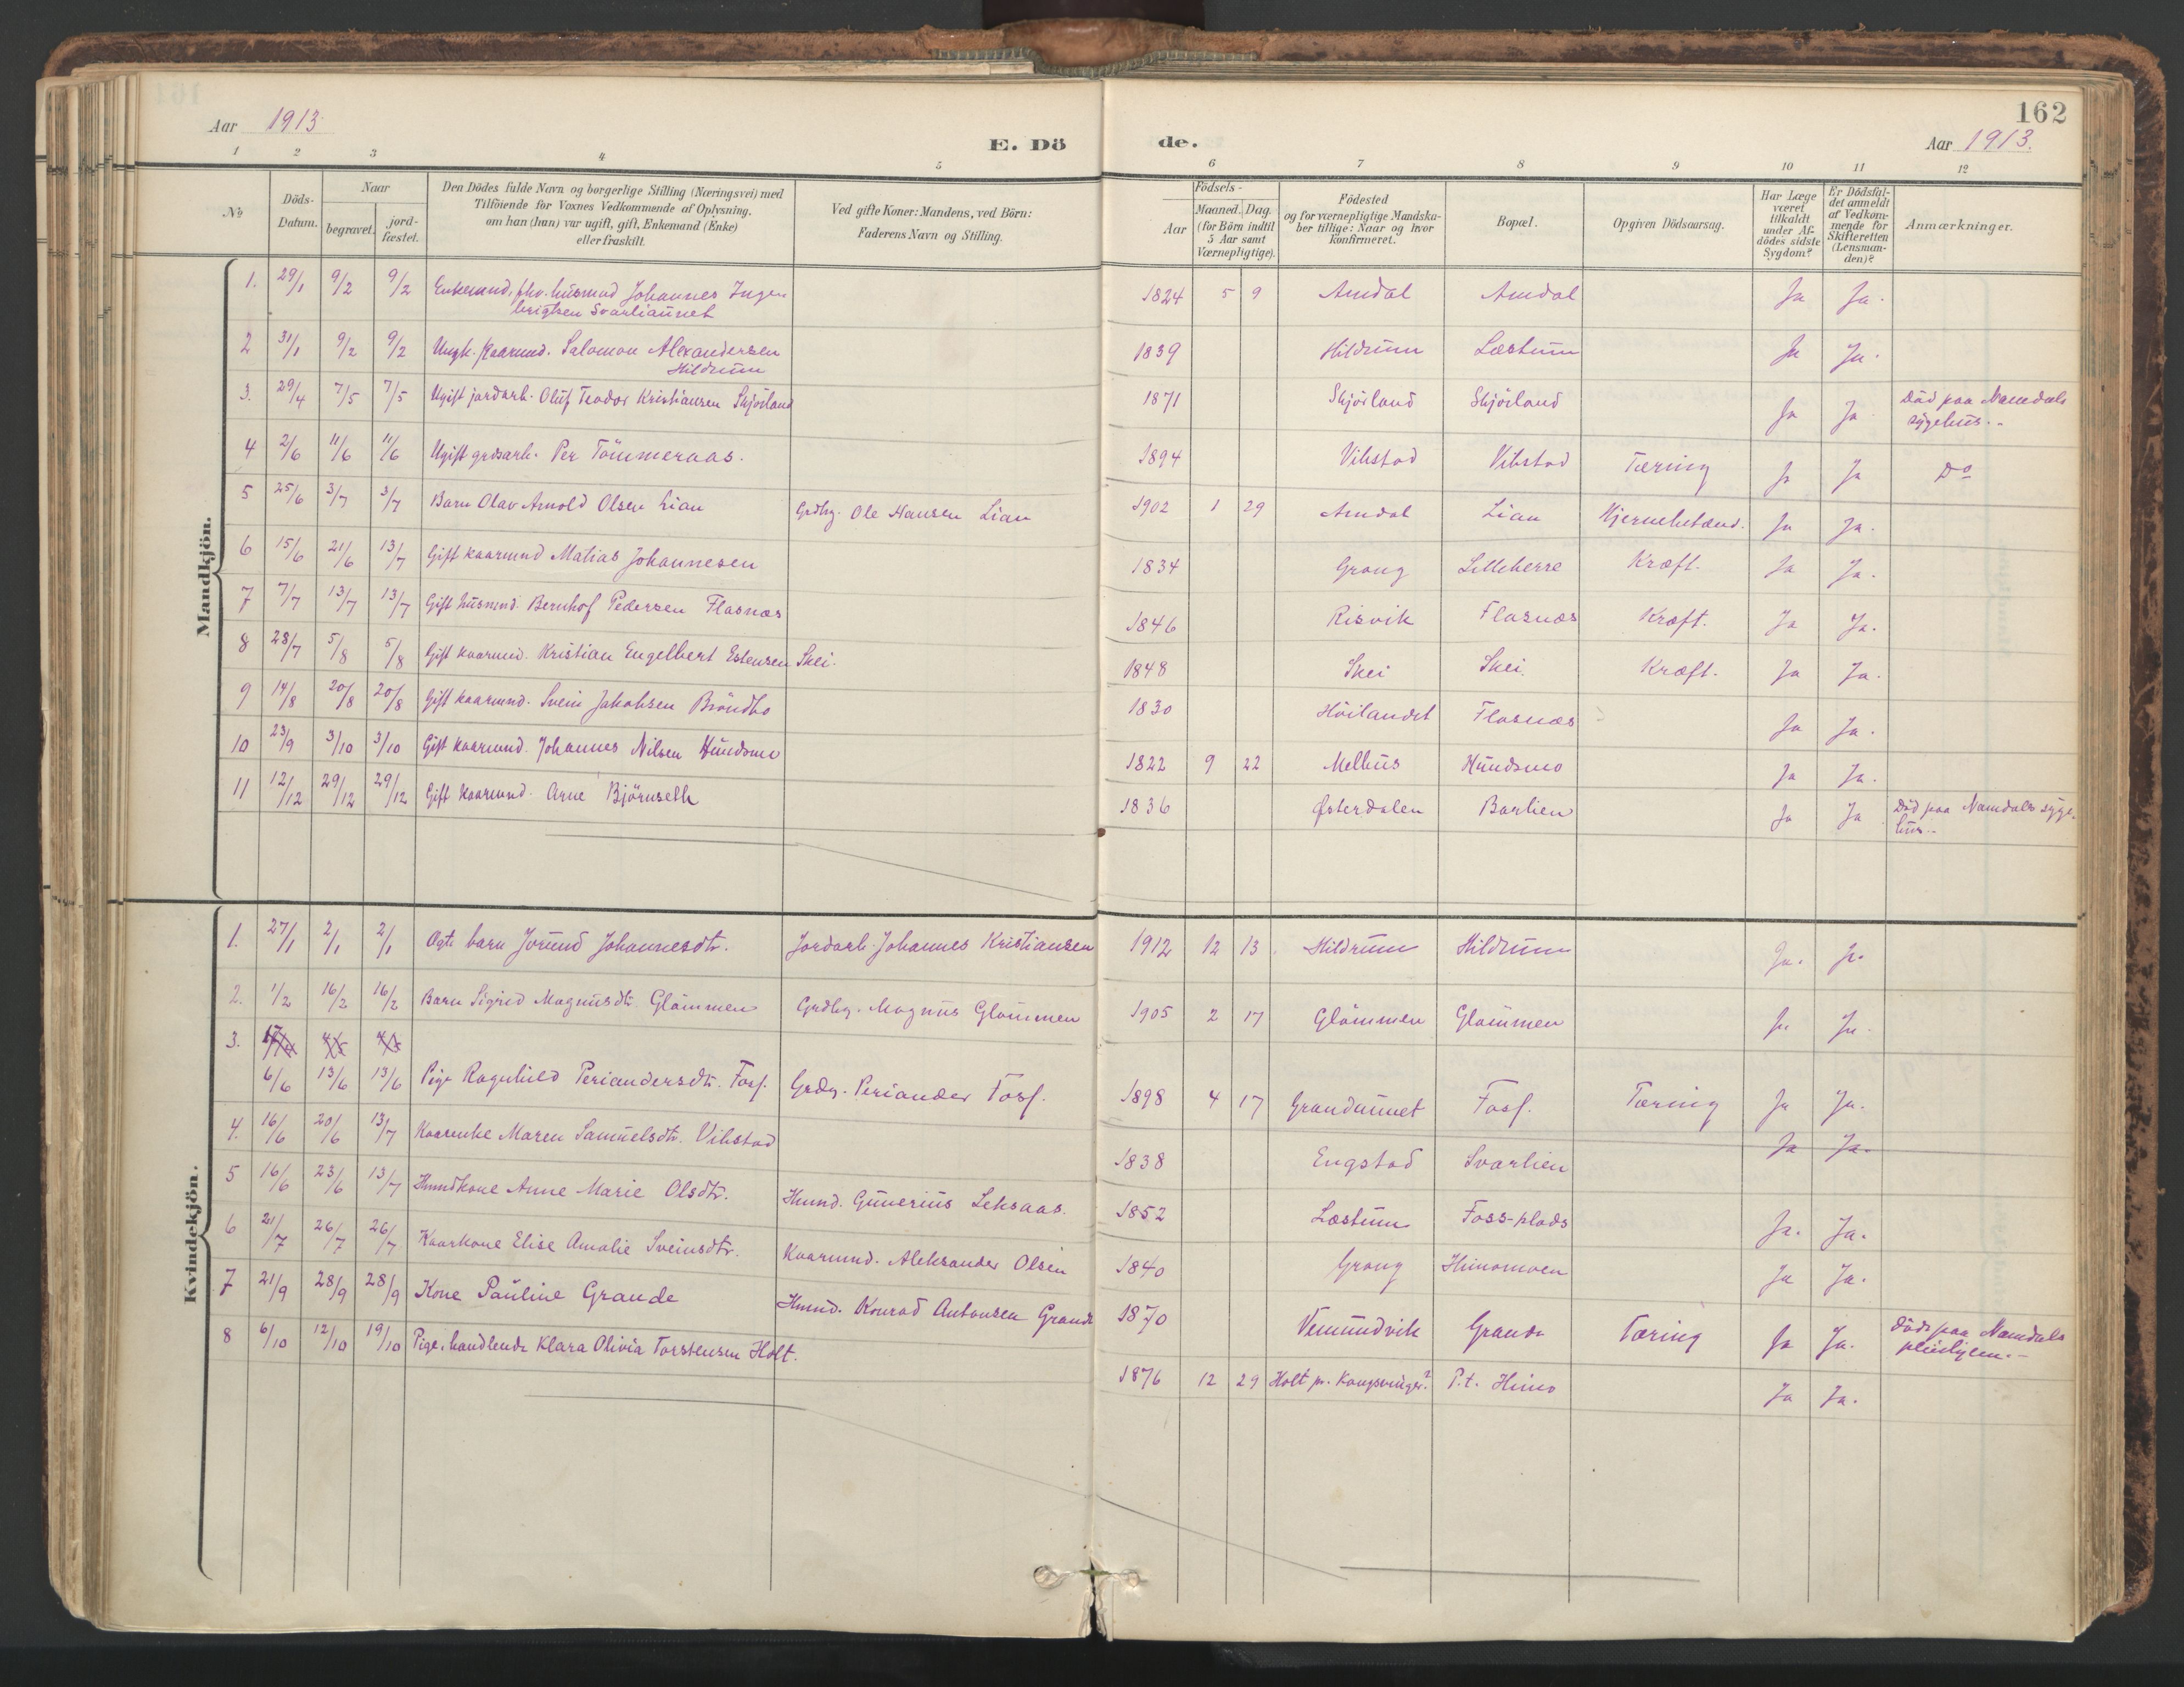 Aar 1913
E. Döde.
162
Aar 1913.
1 2 3 4 5 6 7 8 9 10 11 12
No
Döds-Datum.
Naar
begravet.
jordfæstet.
Den Dödes fulde Navn og borgerlige Stilling (Næringsvei) med
Tilföiende for Voxnes Vedkommende af Oplysning,
om han (hun) var ugift, gift, Enkemand (Enke)
eller fraskilt.
Ved gifte Koner: Mandens, ved Börn:
Faderens Navn og Stilling.
Födsels-
Aar
Maaned. Dag.
(for Börn indtil
5 Aar samt
Værnepligtige).
Födested
og for værnepligtige Mandska-
ber tillige: Naar og hvor
konfirmeret.
Bopæl.
Opgiven Dödsaarsag.
Har Læge
været
tilkaldt
under Af-
dödes sidste
Sygdom?
Er Dödsfal-
det anmeldt
af Vedkom-
mende for
Skifteretten
(Lensman-
den)?
Anmærkninger.
Mandkjön.
1. 29/1 9/2 9/2 Enkemand, fhv. husmnd Johannes Inge-
brigtsen Svarliaunet 1824 5 9 Amdal Amdal Ja Ja.
2 31/1 9/2 9/2 Ungk. kaarmd. Salomon Alexandersen
Hildrum 1839 Hildrum Læstum Ja Ja.
3. 29/4 7/5 7/5 Ugift jordarb. Oluf Teodor Kristiansen Skjörland 1871 Skjörland Skjörland Ja Ja Död paa Namdals
sygehus.-
4 2/6 11/6 11/6 Ugift grdsarb. Per Tömmeraas. 1894 Vibstad Vibstad Tæring Ja Ja Do
5 25/6 3/7 3/7 Barn Olav Arnold Olsen Lian Grdbr. Ole Hansen Lian 1902 1 29 Amdal Lian Hjernebetænd. Ja Ja.
6 15/6 21/6 13/7 Gift kaarmnd Matias Johannesen 1834 Grong Lilleherre Kræft. Ja Ja.
7 7/7 13/7 13/7 Gift husmnd. Bernhof Pedersen Flasnæs 1846 Risvik Flasnæs Kræft. Ja Ja.
8 28/7 5/8 5/8 Gift kaarmnd. Kristian Engelbert Estensen Skei. 1848 Skei Skei. Kræft. Ja Ja.
9 14/8 20/8 20/8 Gift kaarmnd. Svein Jakobsen Bröndbo 1830 Höilandet Flasnæs Ja Ja.
10 23/9 3/10 3/10 Gift kaarmnd. Johannes Nilsen Hundsmo 1822 9 22 Melhus Hundsmo Ja Ja.
11 12/12 29/12 29/12 Gift kaarmnd. Arne Björnseth 1836 Østerdalen Barlien Ja Ja Död paa Namdals syge-
hus.-
Kvindekjön.
1. 27/1 2/1 2/1 Ogte barn Jorund Johannesdtr. Jordarb. Johannes Kristiansen 1912 12 13. Hildrum Hildrum Ja. Ja
2. 1/2 16/2 16/2 Barn Sigrid Magnusdtr. Glömmen Grdbr. Magnus Glömmen 1905 2 17 Glömmen Glömmen Ja Ja.
3. 4/5 4/5
6/6 13/6 13/6 Pige Ragnhild Periandersdtr. Fosf. Grdbr. Periander Fosf. 1898 4 17 Grandaunet Fosf. Tæring Ja Ja.
4. 16/6 20/6 13/7 Kaarenke Maren Samuelsdtr. Vibstad 1838 Engstad Svarlien Ja Ja.
5 16/6 23/6 13/7 Hmndkone Anne Marie Olsdtr. Hmnd. Gunerius Leksaas. 1852 Læstum Foss-plads Ja. Ja.
6 21/7 26/7 26/7 Kaarkone Elise Amalie Sveinsdtr. Kaarmnd. Aleksander Olsen 1840 Grong Himomoen Ja Ja.
7 21/9 28/9 28/9 Kone Pauline Grande Hmnd. Konrad Antonsen Grande 1870 Vemundvik Grande Tæring Ja Ja. Död paa Namdals
pleiehjem.-
8 6/10 12/10 19/10 Pige, handlende Klara Olivia Torstensen Holt. 1876 12 29 Holt pr. Kongsvinger? P.t. Himo Ja Ja.